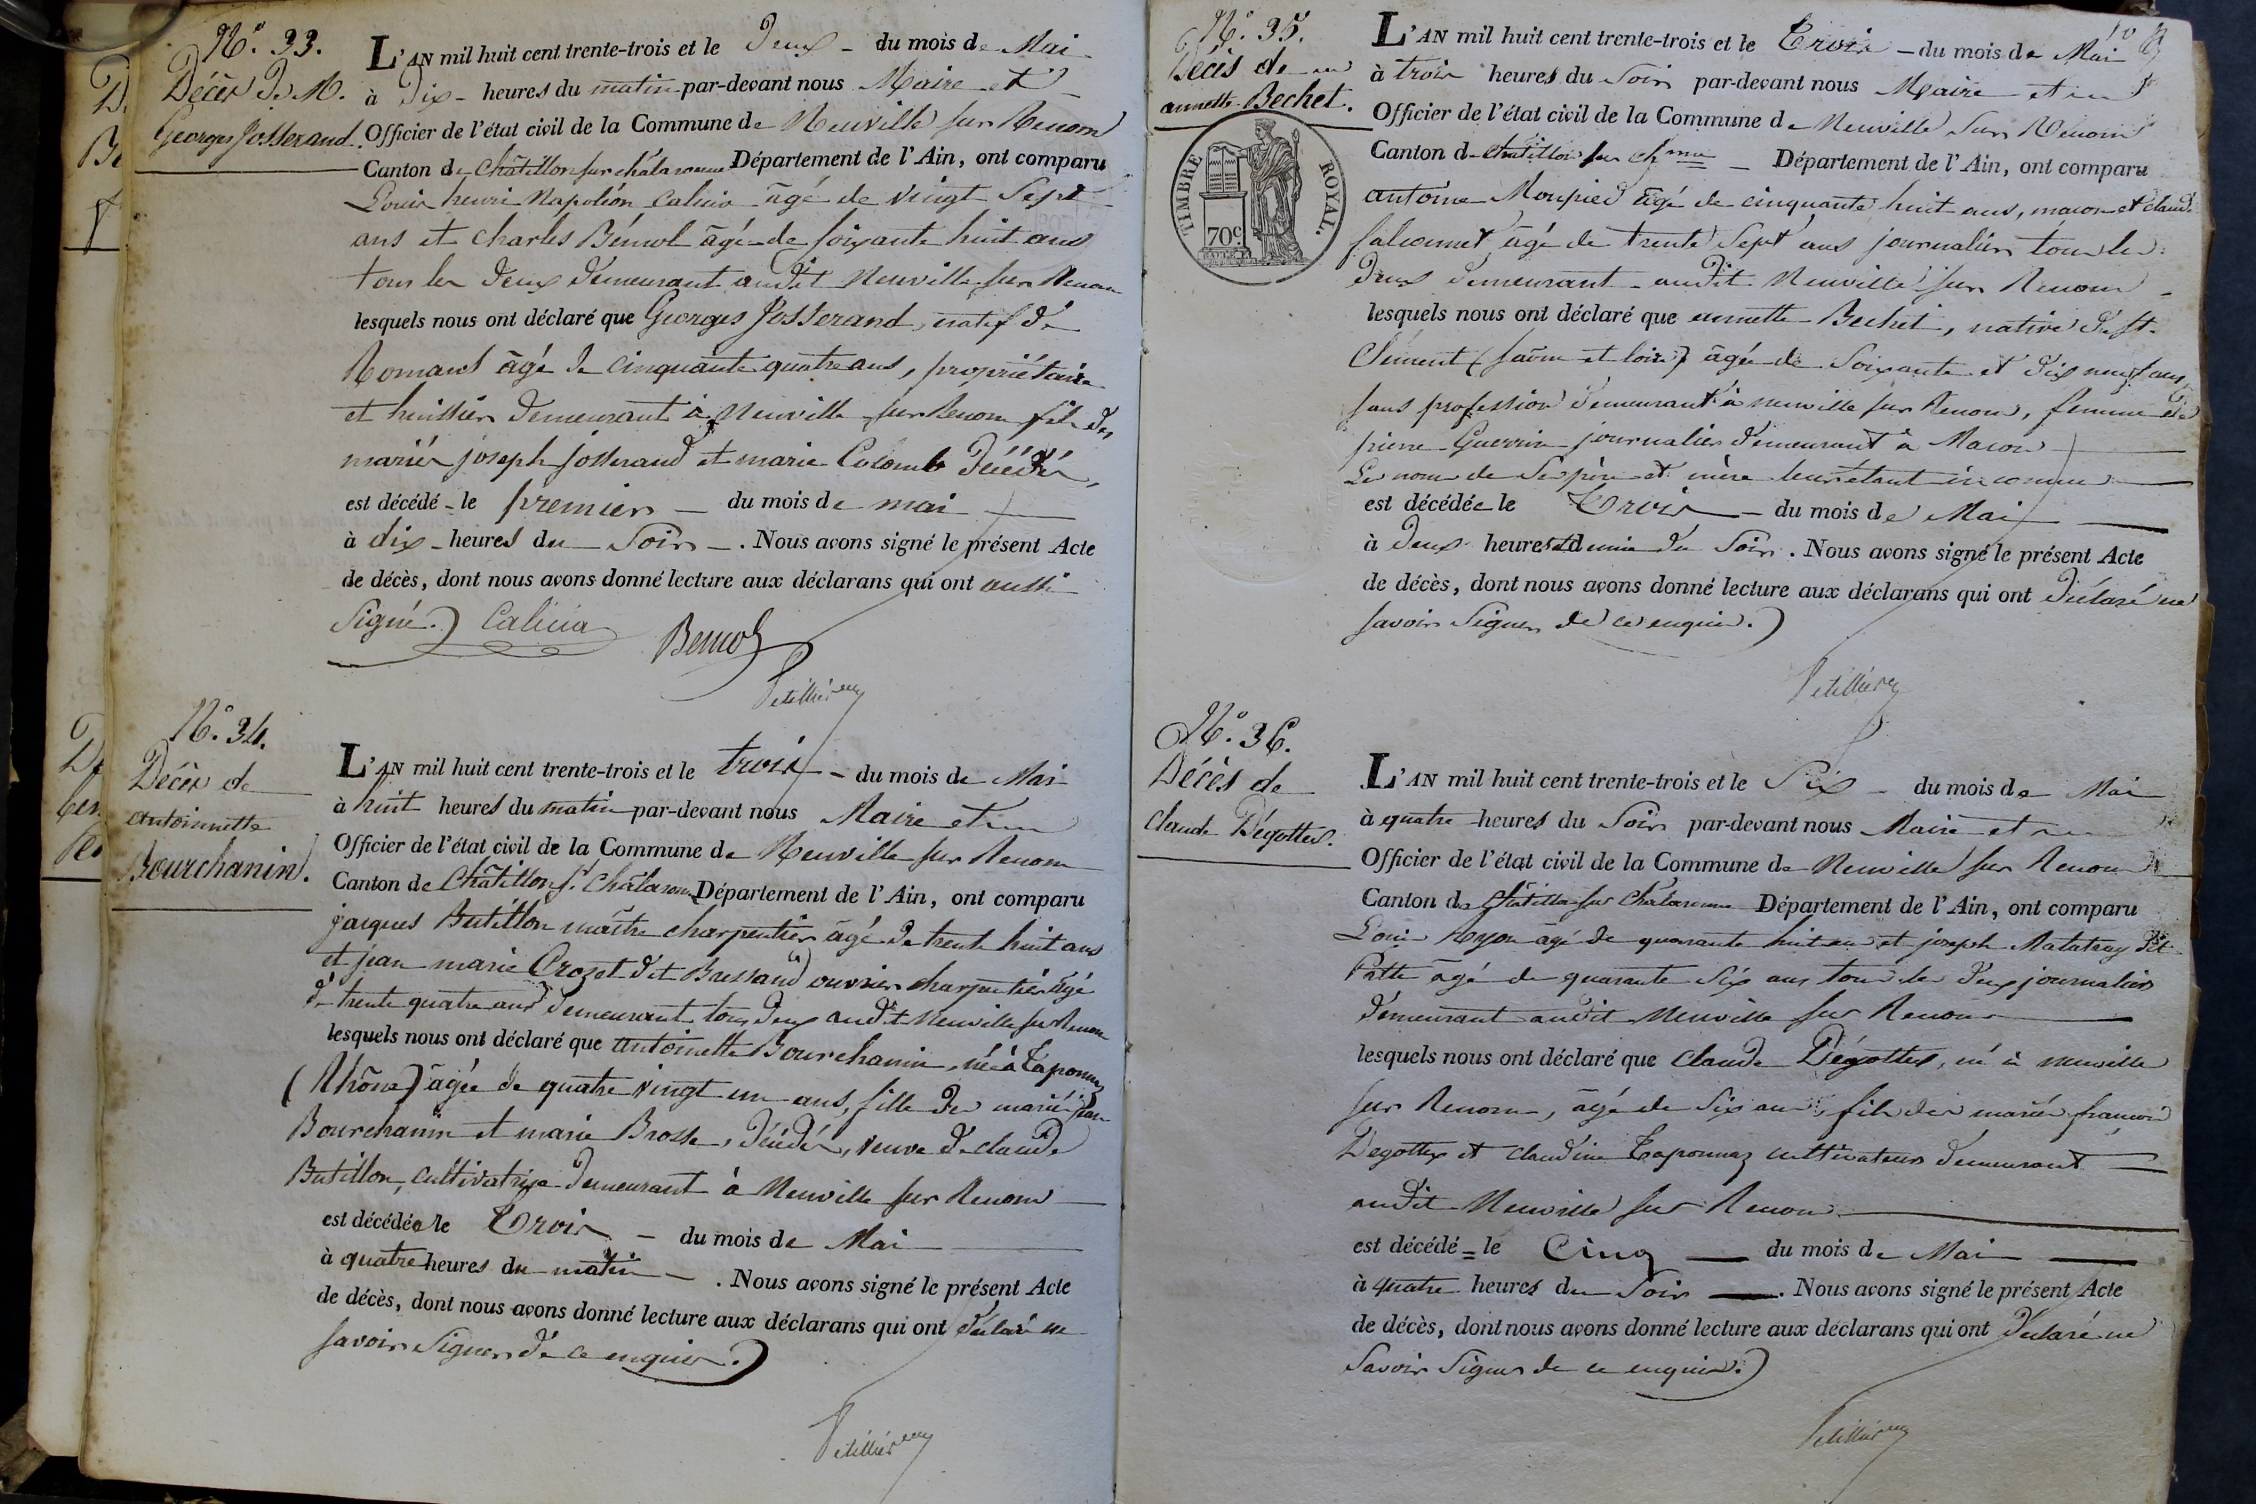 N.º 33.
Décès de M.
Georges Josserand.
L'AN mil huit cent trente-trois et le Deux - du mois de Mai
à Dix - heures du matin par-devant nous Maire et
Officier de l'état civil de la Commune de Neuville sur Renom
Canton de Châtillon sur chalaronne Département de l'Ain, ont comparu
Louis henri Napoléon Calicia âgé de vingt Sept
ans et Charles Bémol âgé de soixante huit ans
tous les deux demeurant audit Neuville sur Renom
lesquels nous ont déclaré que Georges Josserand, natif de
Romans âgé de cinquante quatre ans, propriétaire
et huissier demeurant à Neuville sur Renom fils des
mariés joseph Josserand et marie Colomb Décédés,
est décédé - le premier - du mois de mai
à dix - heures du Soir - . Nous avons signé le présent Acte
de décès, dont nous avons donné lecture aux déclarans qui ont aussi
Signé.) Calicia Bemol
Petillier
N.º 34.
Décès de
antoinette
Bourchanin.
L'AN mil huit cent trente-trois et le trois - du mois de Mai
à huit heures du matin par-devant nous Maire et
Officier de l'état civil de la Commune de Neuville sur Renom
Canton de Châtillon s.r Chalaronne Département de l'Ain, ont comparu
jacques Butillon maître charpentier âgé de trente huit ans
et jean marie Crozet dit Bressand ouvrier charpentier âgé
de trente quatre ans demeurant tous deux audit Neuville sur Renom
lesquels nous ont déclaré que antoinette Bourchanin, née à Taponnaz
(Rhône) âgée de quatre vingt un ans, fille des mariés jean
Bourchanin et marie Brosse, décédés, veuve de claude
Butillon, cultivatrice demeurant à Neuville sur Renom
est décédée le Trois - du mois de Mai
à quatre heures du matin - . Nous avons signé le présent Acte
de décès, dont nous avons donné lecture aux déclarans qui ont déclaré ne
savoir Signer de ce enquis.)
Petillier
N.º 35.
Décès de
annette Bechet.
TIMBRE ROYAL.
70c
L'AN mil huit cent trente-trois et le Trois - du mois de Mai
à trois heures du Soir par-devant nous Maire et
Officier de l'état civil de la Commune de Neuville sur Renom
Canton de Châtillon sur Ch.nne - Département de l'Ain, ont comparu
antoine Monpied âgé de cinquante huit ans, maçon et claude
falconnet, âgé de trente Sept ans journalier tous les
deux demeurant audit Neuville sur Renom
lesquels nous ont déclaré que annette Bechet, native de St.
Clément (saône et loire) âgée de Soixante et dix neuf ans,
sans profession demeurant à neuville sur Renom, femme de
pierre Guerrin journalier demeurant à Macon
Le nom de Ses père et mère leur étant inconnu
est décédée le Trois - du mois de Mai
à Deux heures et demie du Soir. Nous avons signé le présent Acte
de décès, dont nous avons donné lecture aux déclarans qui ont déclaré ne
savoir Signer de ce enquis.)
Petillier
N.º 36.
Décès de
claude Dégottex.
L'AN mil huit cent trente-trois et le Six - du mois de Mai
à quatre heures du Soir par-devant nous Maire et
Officier de l'état civil de la Commune de Neuville sur Renom
Canton de Châtillon sur Chalaronne Département de l'Ain, ont comparu
Louis âgé de quarante huit ans et joseph Malatray dit
âgé de quarante Six ans tous les deux journaliers
demeurant audit Neuville sur Renom
lesquels nous ont déclaré que claude Dégottex, né à neuville
sur Renom, âgé de Six ans, fils des mariés françois
Dégottex et claudine Taponnaz cultivateurs demeurant
audit Neuville sur Renom
est décédé = le Cinq - du mois de Mai
à quatre heures du Soir - . Nous avons signé le présent Acte
de décès, dont nous avons donné lecture aux déclarans qui ont déclaré ne
Savoir Signer de ce enquis.)
Petillier